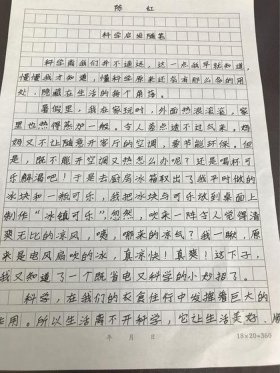 陈 红
科学启迪随笔
科学离我们并不遥远,这一点我早就知道,
懂懂我才知道,懂得科学原来还会有那么多的用
处,隐藏在生活的每个角落。
暑假里,我在家玩时,外面热浪滚滚,家
里也热得蒸炉一般。令人差点透不过气来。妈
妈又不让随意开客厅的空调,要节能环保。但
是,既不能开空调又热怎么办呢?还是喝杯可
乐解渴吧!于是去厨房冰箱取出了我平时做的
冰块和一瓶可乐,我把冰块与可乐放到桌面上
制作“冰镇可乐”,忽然,吹来一阵令人觉得清
爽无比的凉风,咦,哪来的凉气?我一瞅,原
来是电风扇吹的冰,真凉快!真爽!这下子,
我又知道了一个既省电又科学的小妙招了。
科学,在我们的衣食住行中发挥着巨大的
作用。所以生活离不开科学,它让生活美好
年 月 日
18×20=360